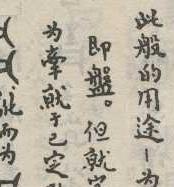 此般的用途—为
即盤。但就字
为牽就于已定
能而为